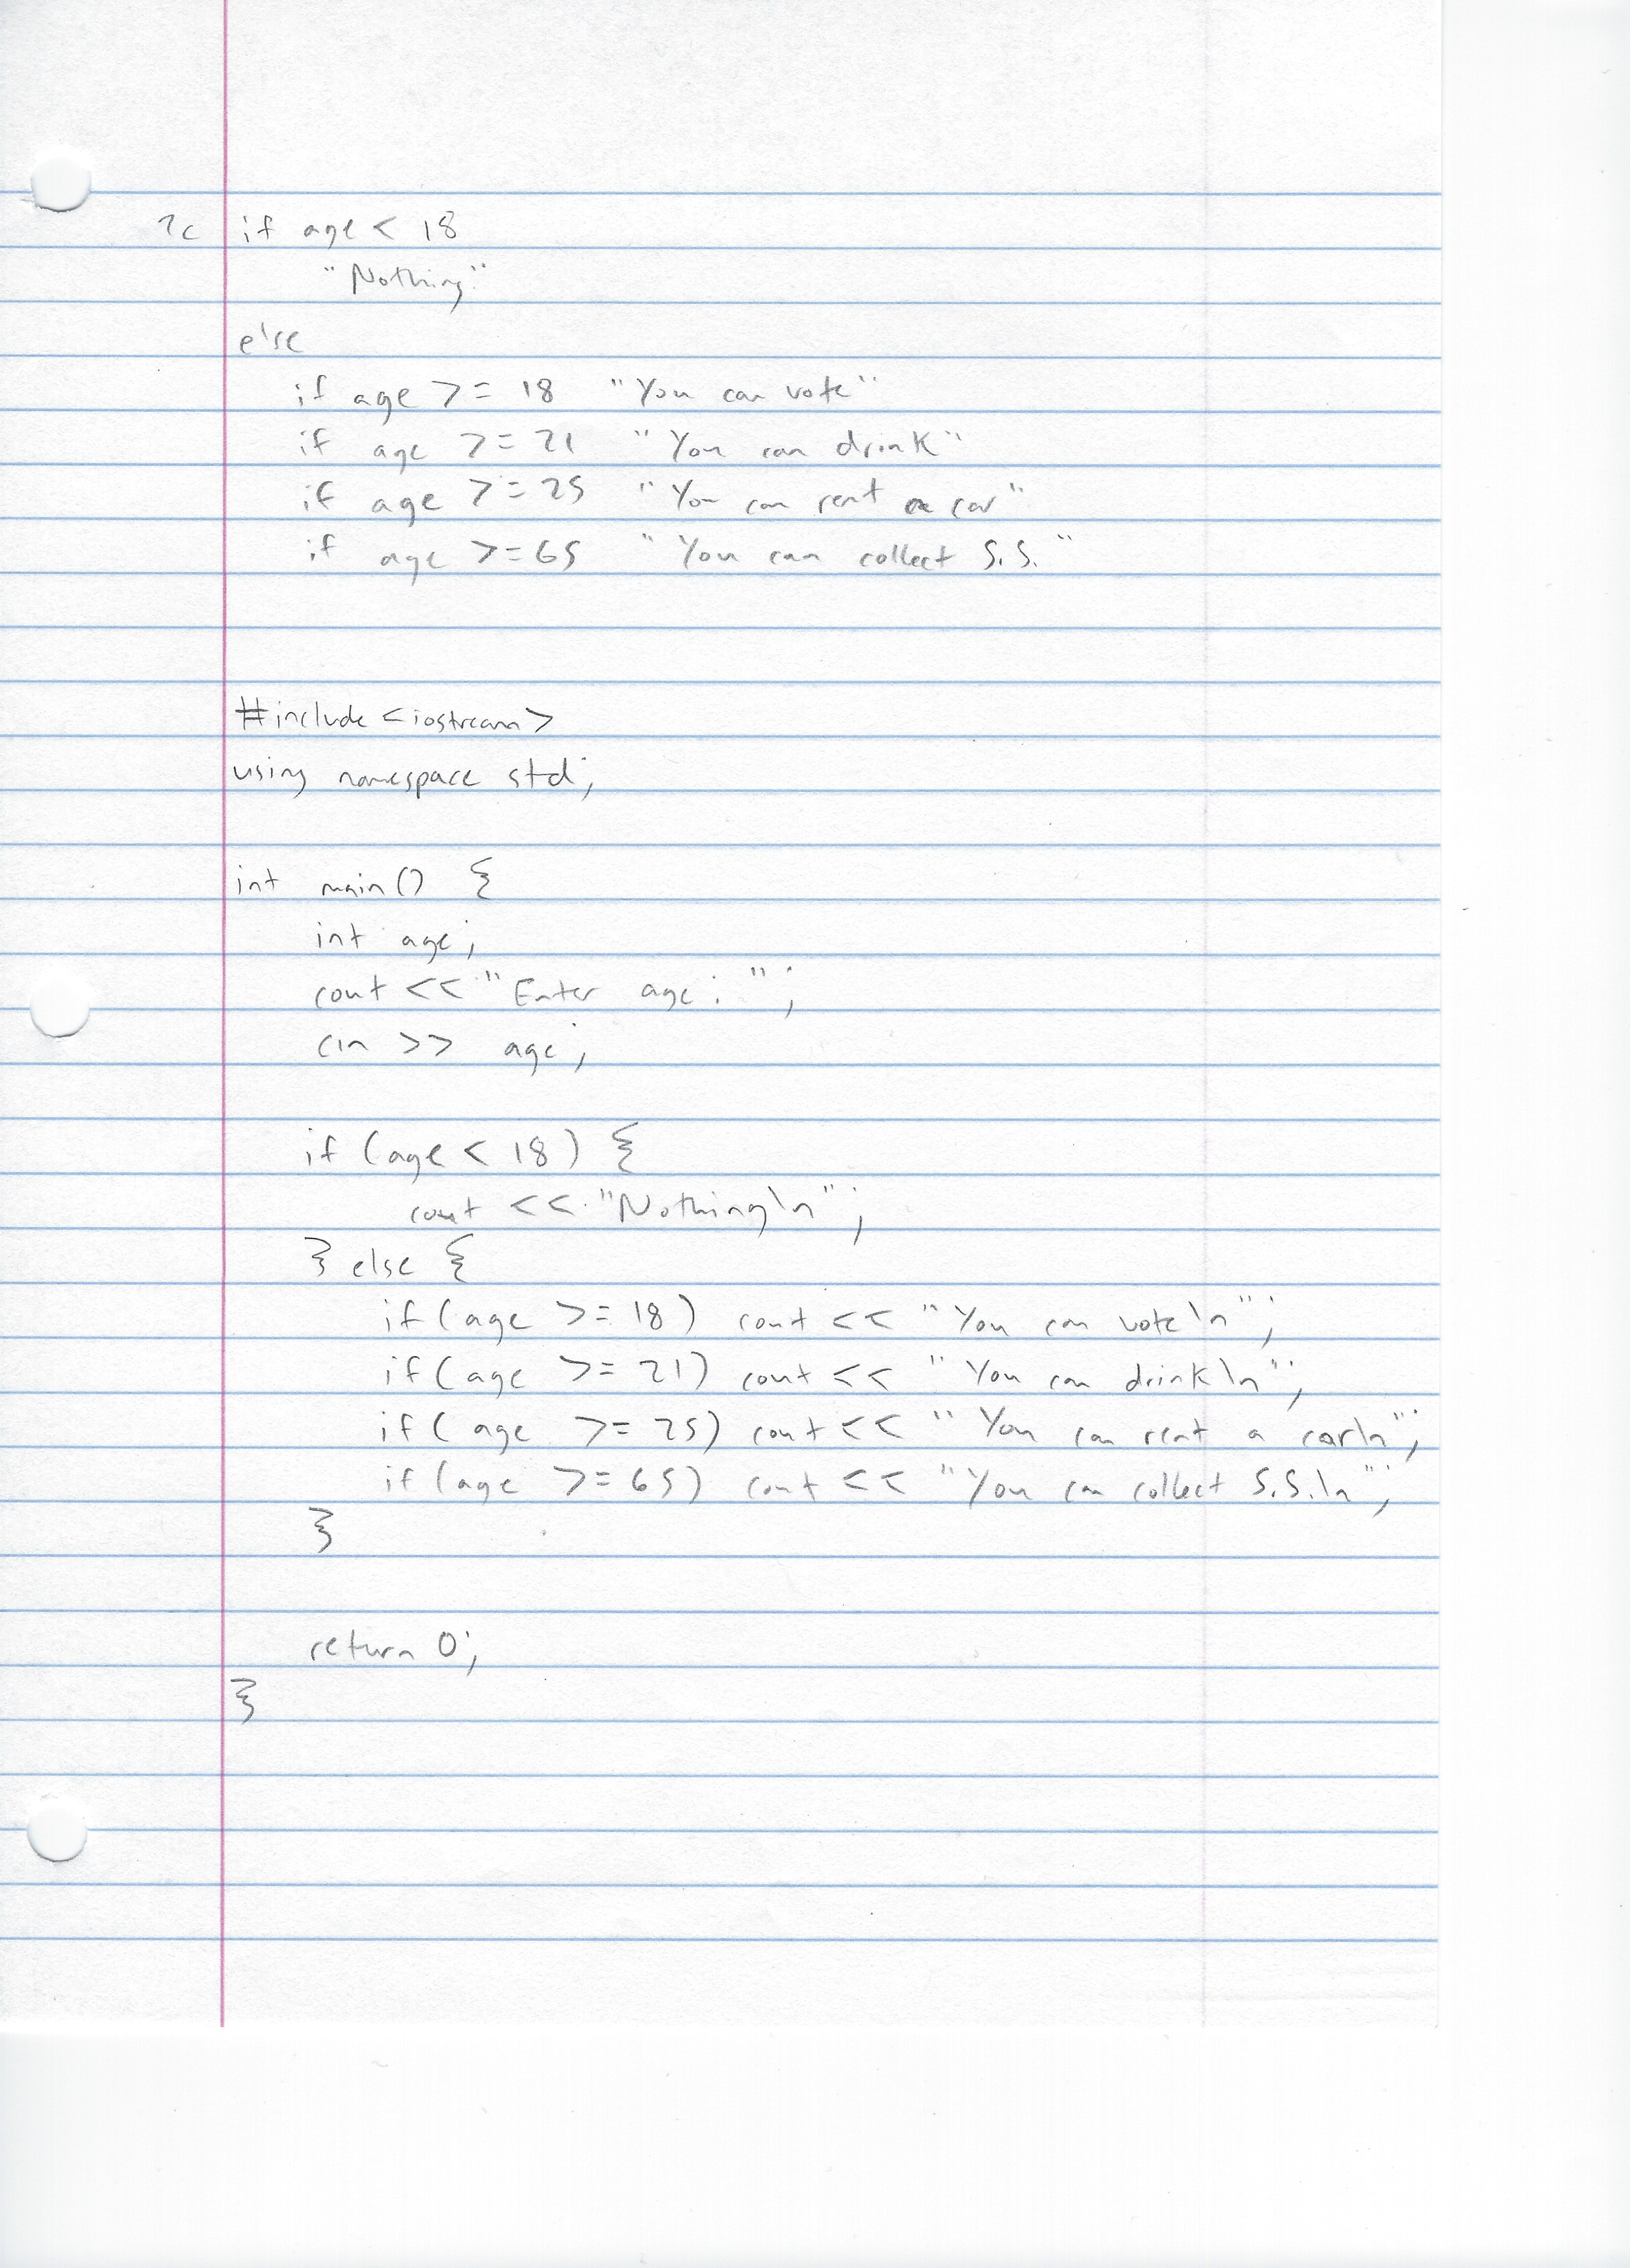 2c if age < 18
"Nothing"
else
if age >= 18 "You can vote"
if age >= 21 "You can drink"
if age >= 25 "You can rent a car"
if age >= 65 "You can collect S.S."
#include <iostream>
using namespace std;
int main() {
int age;
cout << "Enter age: ";
cin >> age;
if (age < 18) {
cout << "Nothing\n";
} else {
if (age >= 18) cout << "You can vote\n";
if (age >= 21) cout << "You can drink\n";
if (age >= 25) cout << "You can rent a car\n";
if (age >= 65) cout << "You can collect S.S.\n";
}
return 0;
}